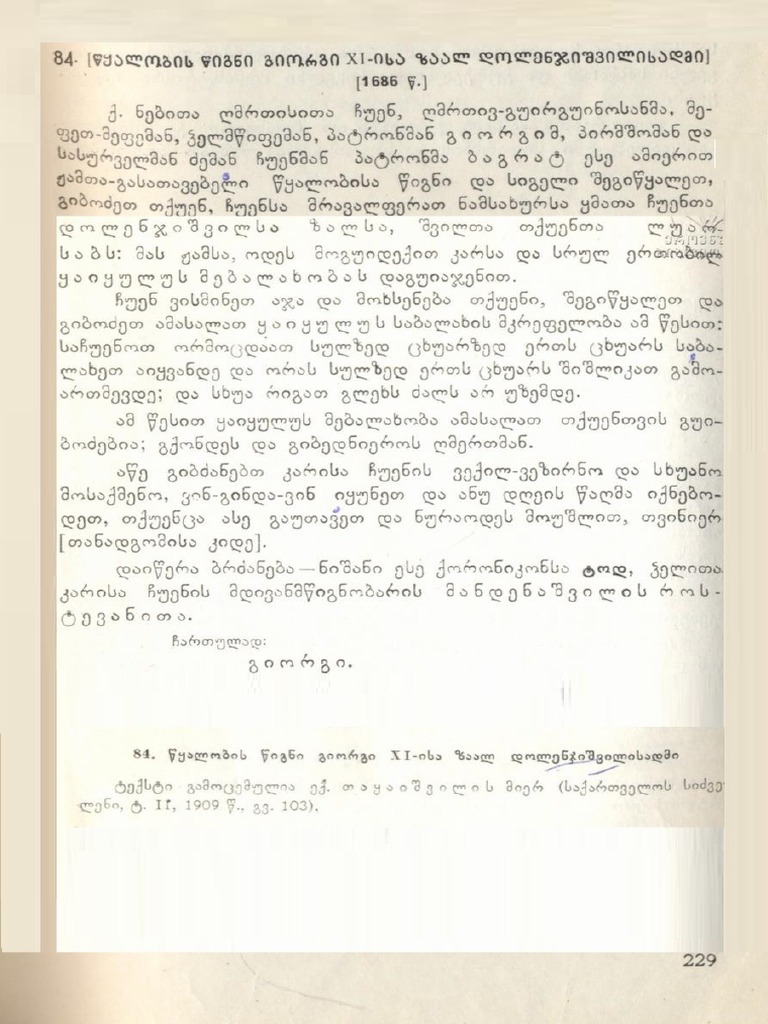 84. [წყალობის წიგნი გიორგი XI-ისა ზაალ დოლენჯიშვილისადმი]
[1686 წ.]
ქ. ნებითა ღმრთისითა ჩუენ, ღმრთივ-გუირგუინოსანმა, მე-
ფეთ-მეფემან, ჴელმწიფემან, პატრონმან გიორგიმ, პირმშომან და
სასურველმან ძემან ჩუენმან პატრონმა ბაგრატ ესე ამიერით
ჟამთა-გასათავებელი წყალობისა წიგნი და სიგელი შეგიწყალეთ,
გიბოძეთ თქუენ, ჩუენსა მრავალფერათ ნამსახურსა ყმათა ჩუენთა
დოლენჯიშვილსა ზალსა, შვილთა თქუენთა ლუარ-
საბს: მას ჟამსა, ოდეს მოგუიდექით კარსა და სრულ ერთობილ
ყაიყულუს მებალახობას დაგუიაჯენით.
ჩუენ ვისმინეთ აჯა და მოხსენება თქუენი, შეგიწყალეთ და
გიბოძეთ ამასალათ ყაიყულუს საბალახის მკრეფელობა ამ წესით:
საჩუენოთ ორმოცდაათ სულზედ ცხუარზედ ერთს ცხუარს საბა-
ლახეთ აიყვანდე და ორას სულზედ ერთს ცხუარს შიშლიკათ გამო-
ართმევდე; და სხუა რიგათ გლეხს ძალს არ უზემდე.
ამ წესით ყაიყულუს მებალახობა ამასალათ თქუენთვის გუი-
ბოძებია; გქონდეს და გიბედნიეროს ღმერთმან.
აწე გიბძანებთ კარისა ჩუენის ვექილ-ვეზირნო და სხუანო
მოსაქმენო, ვინ-გინდა-ვინ იყუნეთ და ანუ დღეის წაღმა იქნებო-
დეთ, თქუენცა ასე გაუთავეთ და ნურაოდეს მოუშლით, თვინიერ
[თანადგომისა კიდე].
დაიწერა ბრძანება — ნიშანი ესე ქორონიკონსა ტოდ, ჴელითა
კარისა ჩუენის მდივანმწიგნობარის მანდენაშვილის როს-
ტევანითა.
ჩართულად:
გიორგი.
84. წყალობის წიგნი გიორგი XI-ისა ზაალ დოლენჯიშვილისადმი
ტექსტი გამოცემულია ექ. თაყაიშვილის მიერ (საქართველოს სიძვე
ლენი, ტ. II, 1909 წ., გვ. 103).
229